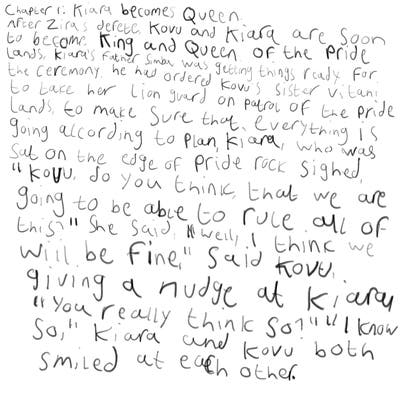 Chapter 1: Kiara becomes Queen.
After Zira's defete, Kovu and Kiara are soon
to become King and Queen of the Pride
Lands, Kiara's Father Simba was getting things ready for
the ceremony, he had ordered Kovu's sister Vitani
to take her Lion guard on patrol of the Pride
Lands, to make sure that everything is
going allcording to plan, Kiara, who was
sat on the edge of Pride rock sighed,
"Kovu, do you think, that we are
going to be able to rule all of
this?" She said, "Well, I think we
will be fine," said Kovu,
giving a nudge at Kiara,
"You really think So?" "I know
So," Kiara and Kovu both
smiled at each other.